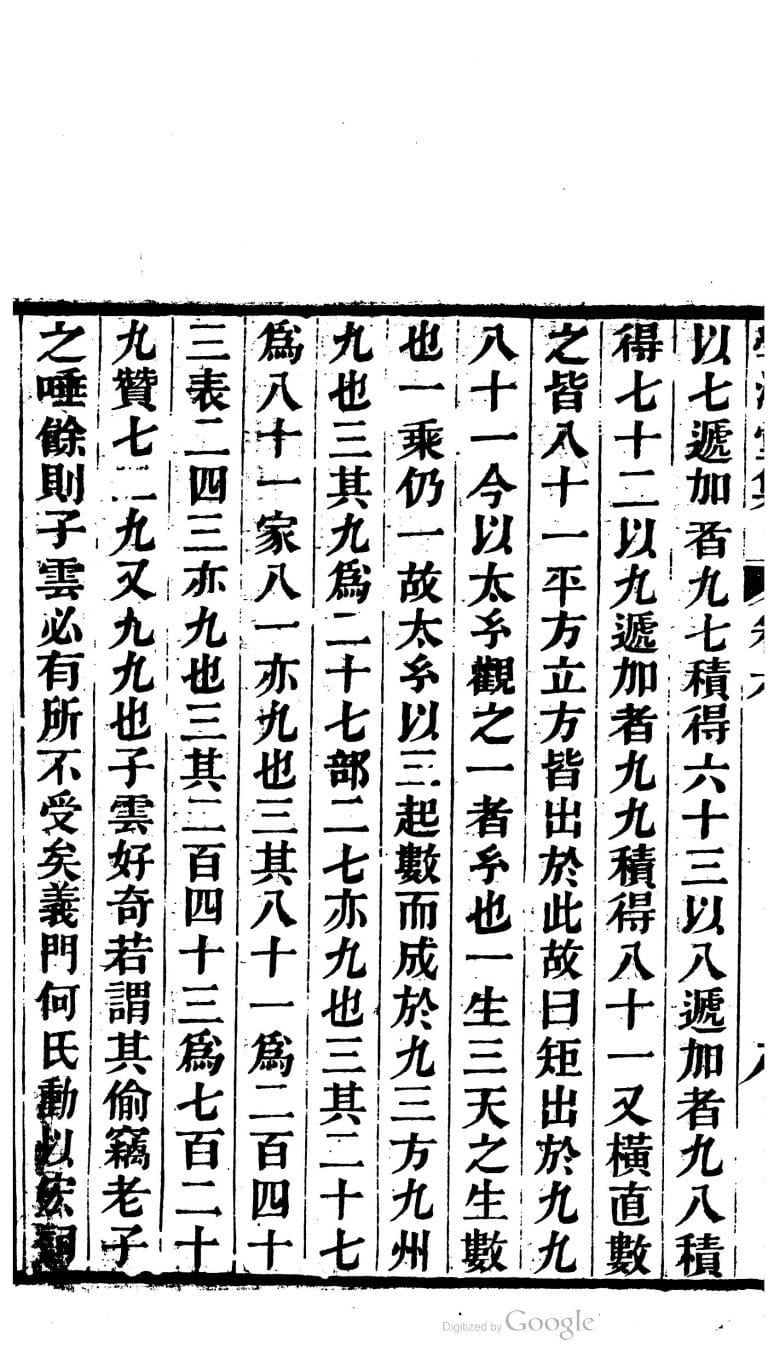 以七遞加者九七積得六十三以八遞加者九八積
得七十二以九遞加者九九積得八十一又橫直數
之皆八十一平方立方皆出於此故曰矩出於九九
八十一今以太𤣥觀之一者𤣥也一生三天之生數
也一乘仍一故太𤣥以三起數而成於九三方九州
九也三其九爲二十七部二七亦九也三其二十七
爲八十一家八一亦九也三其八十一爲二百四十
三表二四三亦九也三其二百四十三爲七百二十
九贊七二九又九九也子雲好奇若謂其偷竊老子
之唾餘則子雲必有所不受矣義門何氏動以宏詞
Digitized by Google